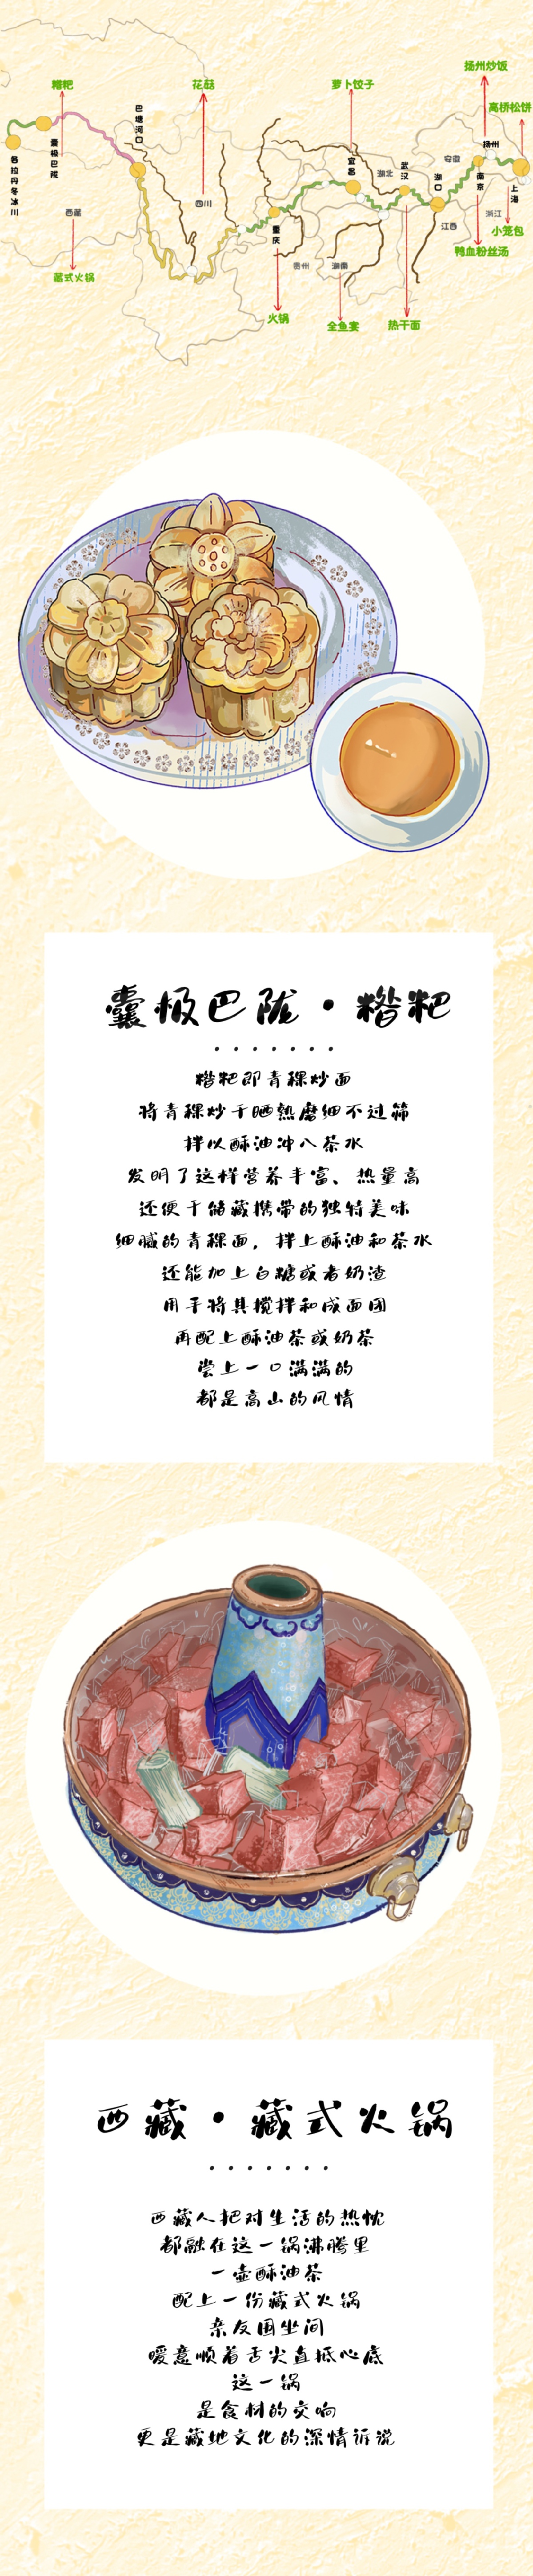 扬州炒饭
糌粑
花菇
萝卜饺子
高桥松饼
巴塘河口
各拉丹冬冰川
囊极巴陇
宜昌
湖北
武汉
湖口
安徽
扬州
南京
上海
西藏
四川
重庆
贵州
湖南
江西
浙江
小笼包
鸭血粉丝汤
藏式火锅
火锅
全鱼宴
热干面
囊极巴陇·糌粑
·······
糌粑即青稞炒面
将青稞炒干晒熟磨细不过筛
拌以酥油冲入茶水
发明了这样营养丰富、热量高
还便于储藏携带的独特美味
细腻的青稞面，拌上酥油和茶水
还能加上白糖或者奶渣
用手将其搅拌和成面团
再配上酥油茶或奶茶
尝上一口满满的
都是高山的风情
西藏·藏式火锅
·······
西藏人把对生活的热忱
都融在这一锅沸腾里
一壶酥油茶
配上一份藏式火锅
亲友围坐间
暖意顺着舌尖直抵心底
这一锅
是食材的交响
更是藏地文化的深情诉说